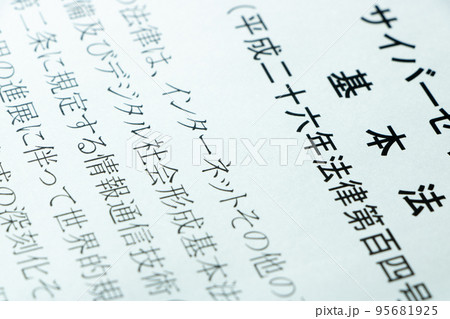 サイバーセ
基本法
（平成二十六年法律第百四号
の法律は、インターネットその他の
備及びデジタル社会形成基本法
第二条に規定する情報通信技術の
用の進展に伴って世界的規
の深刻化そ
95681925